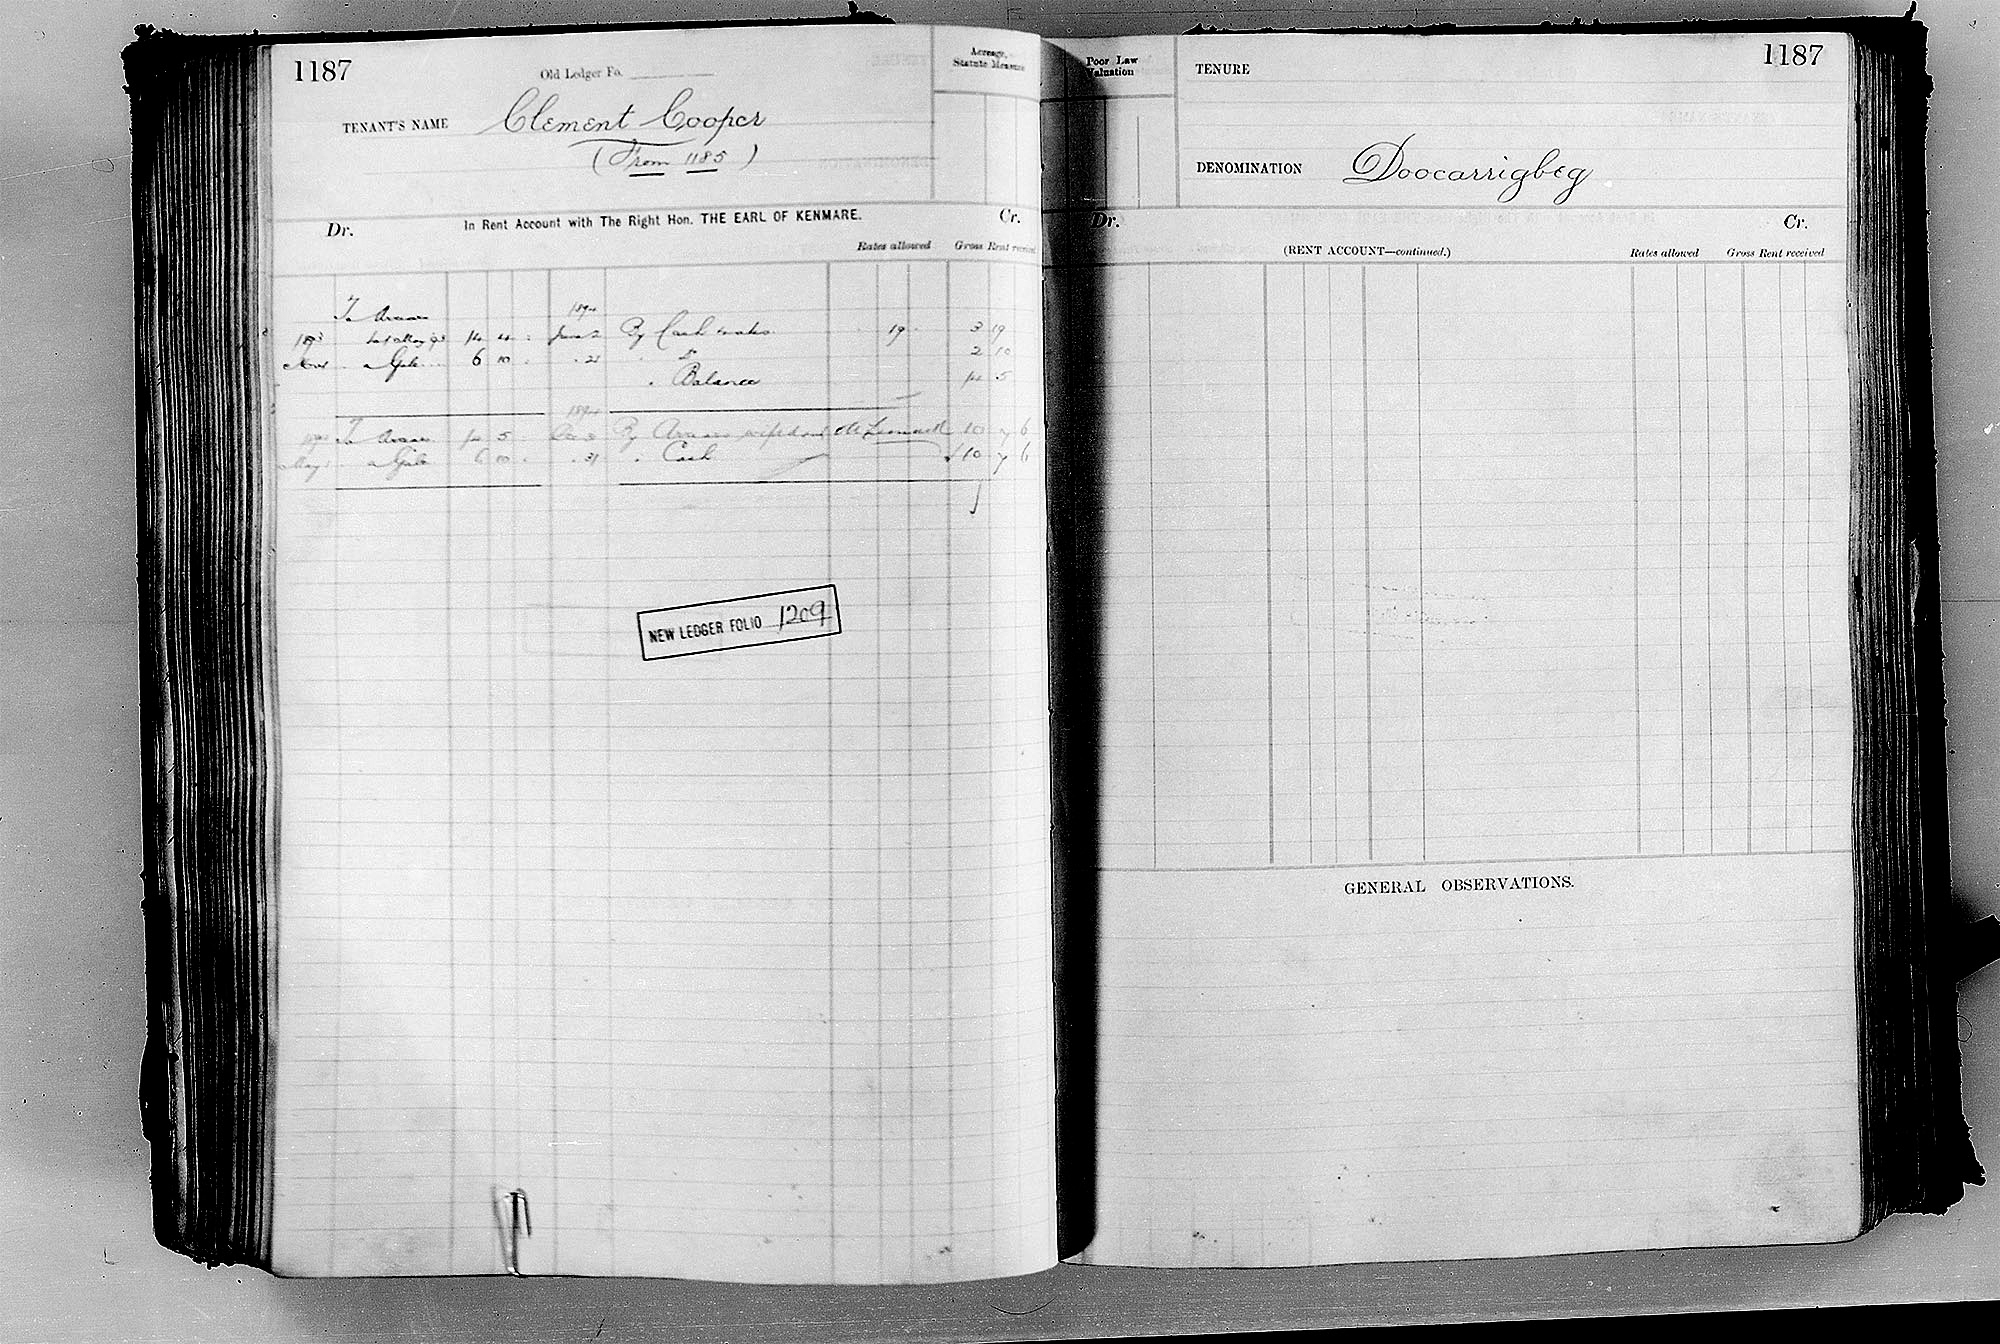 1187
Old Ledger Fo.
Acreage, Statute Measure
TENANT'S NAME Clement Cooper
(From 1185)
Dr. In Rent Account with The Right Hon. THE EARL OF KENMARE. Cr.
Rates allowed Gross Rent received
To Arrears 1894
1893 to 1 May 93 14 4 June 2 By Cash & rates 19 3 19
Nov a Gale 6 10 21 Do 2 10
Balance 14 5
1894
To Arrears 14 5 Dec 31 By Arrears 10 7 6
May a Gale 6 10 31 Cash 10 7 6
NEW LEDGER FOLIO 1209
Poor Law Valuation
TENURE
1187
DENOMINATION Doocarrigbeg
Dr. Cr.
(RENT ACCOUNT—continued.) Rates allowed Gross Rent received
GENERAL OBSERVATIONS.